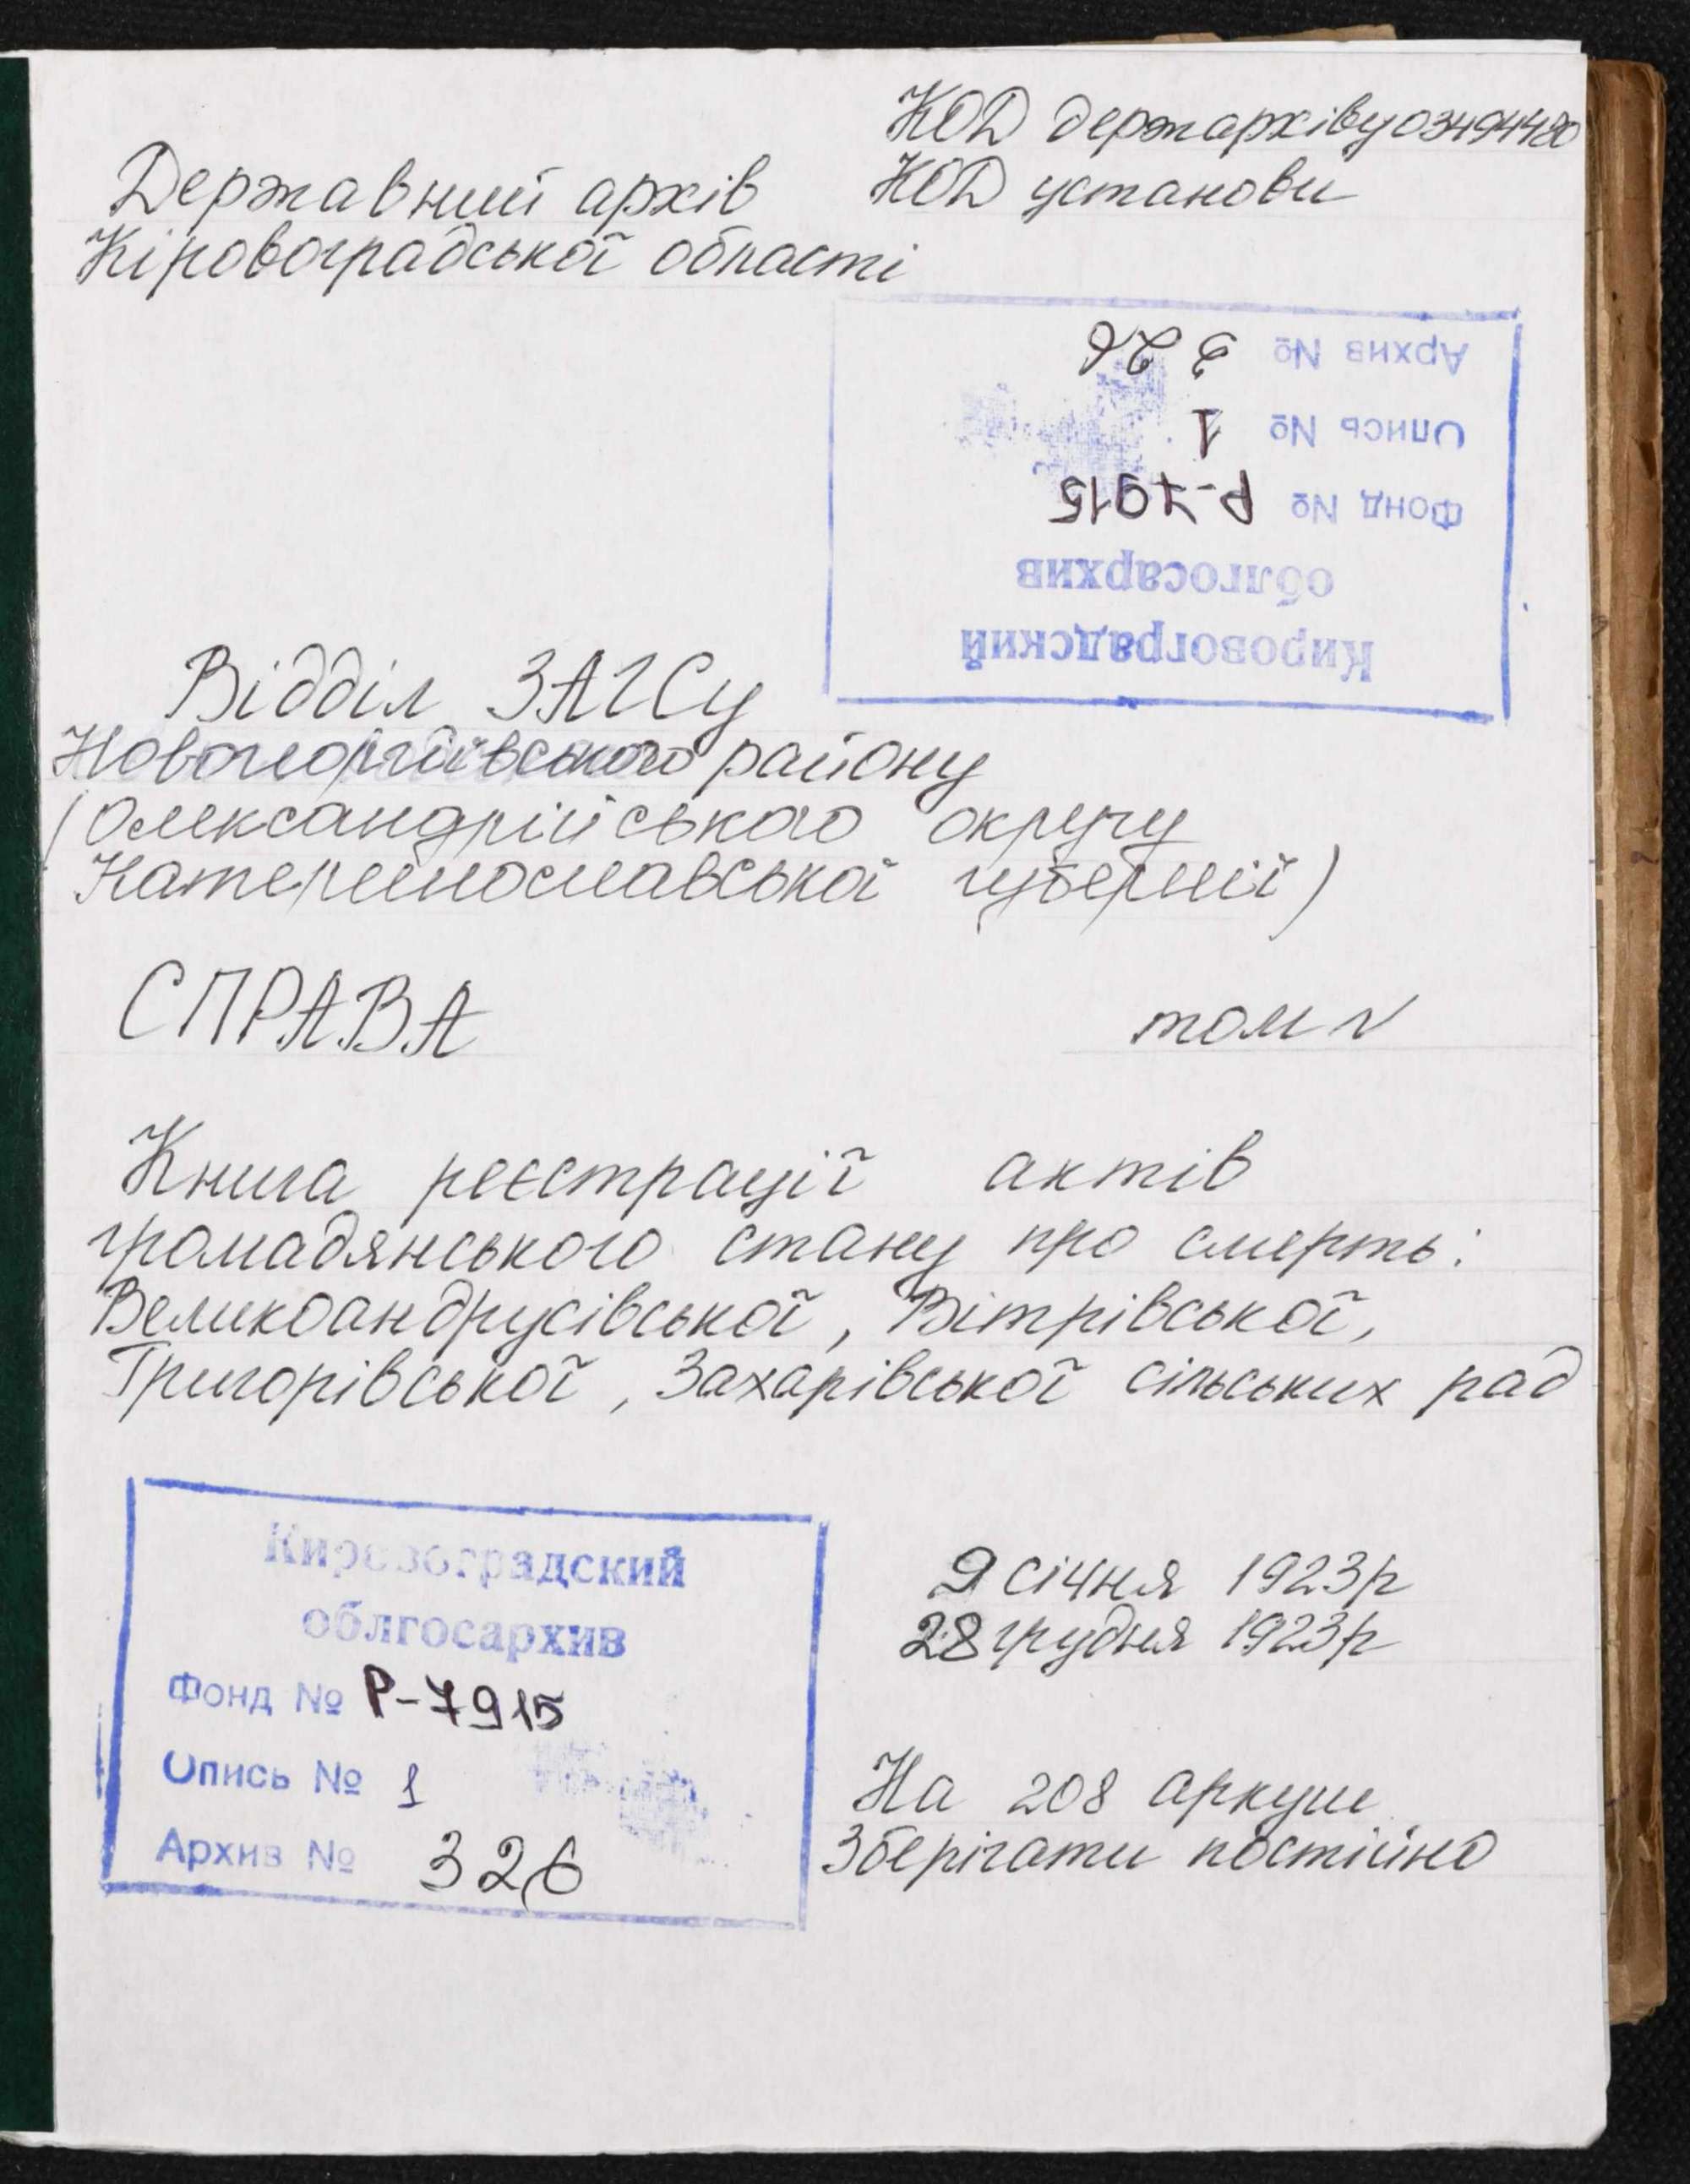 КОД держархіву 03494480
Державний архів КОД установи
Кіровоградської області
Кировоградский
облгосархив
Фонд № Р-7915
Опись № 1
Архив № 326
Відділ ЗАГСу
Новогеоргіївського району
(Олександрійського округу
Катеринославської губернії)
СПРАВА том №
Книга реєстрації актів
громадянського стану про смерть:
Великоандрусівської, Вітрівської,
Григорівської, Захарівської сільських рад
Кировоградский
облгосархив
Фонд № Р-7915
Опись № 1
Архив № 326
9 січня 1923р
28 грудня 1923р
На 208 аркуш
Зберігати постійно